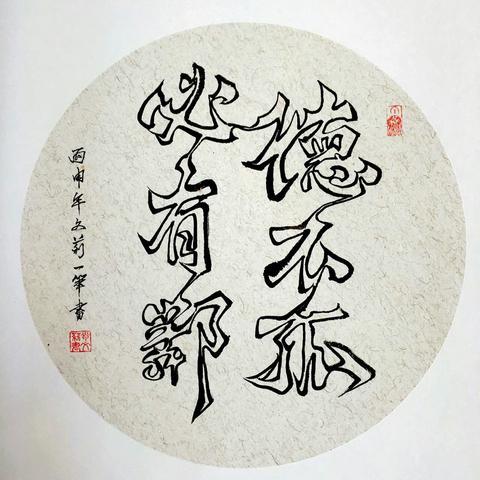 德不孤
必有鄰
丙申年文莉一筆書